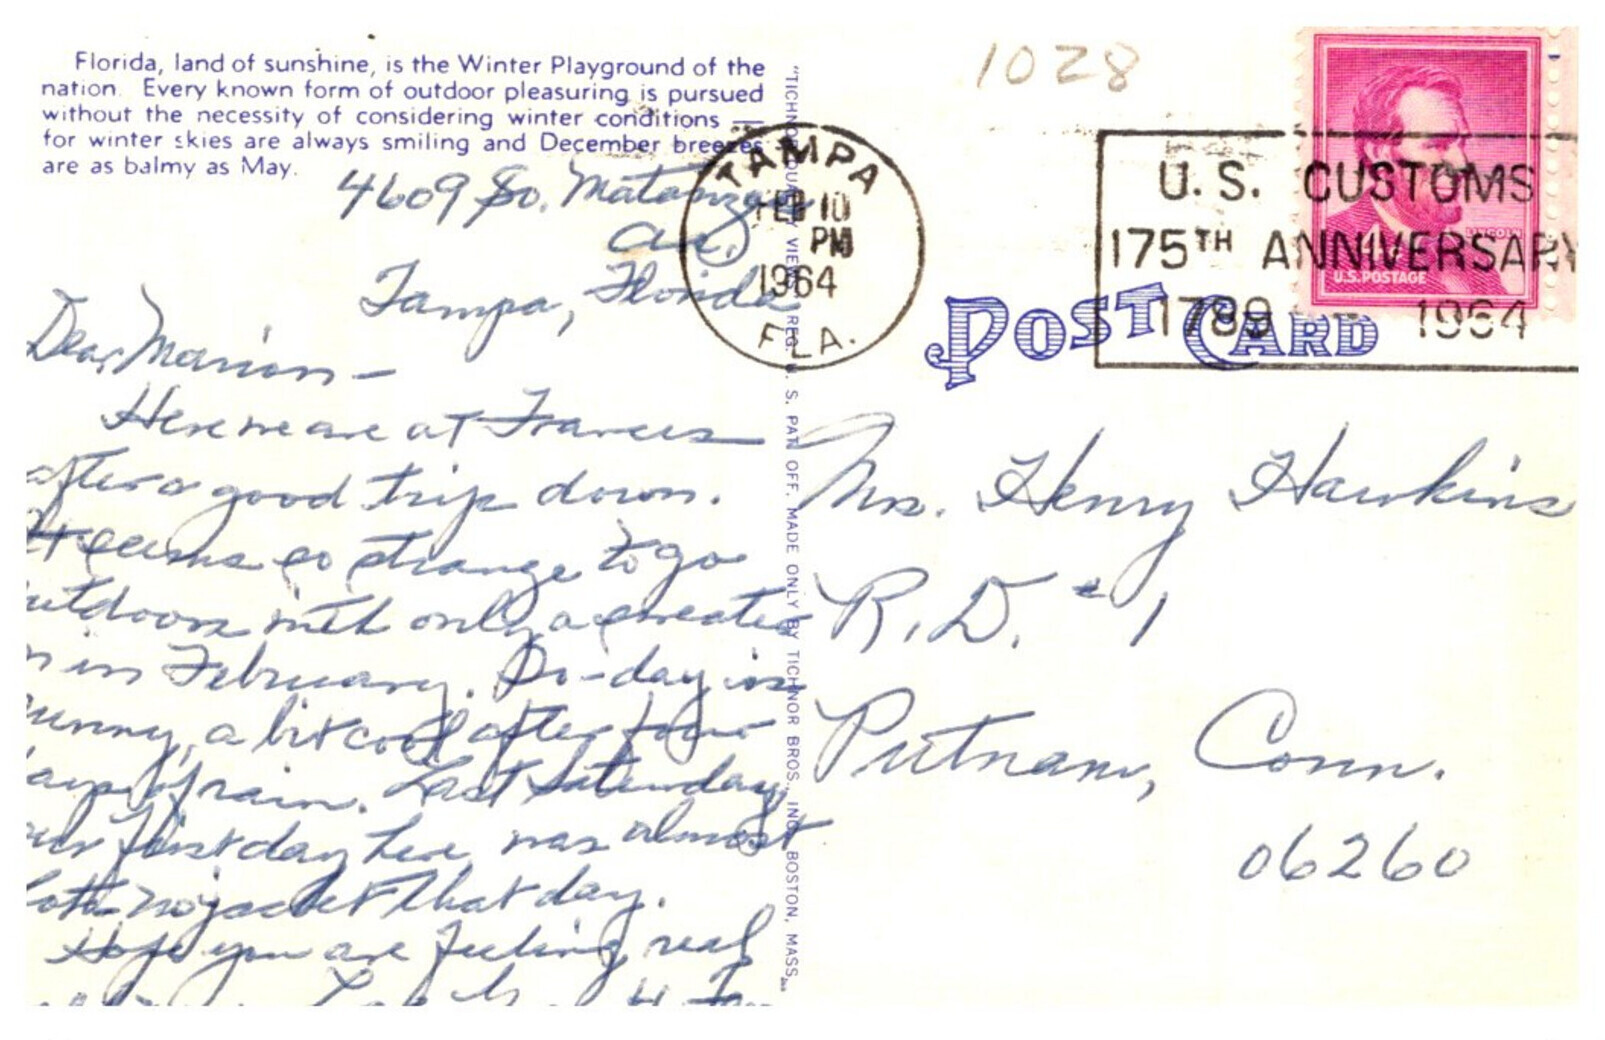 Florida, land of sunshine, is the Winter Playground of the
nation. Every known form of outdoor pleasuring is pursued
without the necessity of considering winter conditions —
for winter skies are always smiling and December breezes
are as balmy as May.
4609 So. Matanzas
Av.
Tampa, Florida
Dear Marion –
Here we are at Frances
after a good trip down.
It seems so strange to go
outdoors with only a sweater
on in February. To-day is
sunny, a bit cool after four
days of rain. Last Saturday
our first day here, was almost
hot no jacket that day.
Hope you are feeling real
"TICHNOR QUALITY VIEWS," REG. U. S. PAT. OFF. MADE ONLY BY TICHNOR BROS., INC., BOSTON, MASS.
1028
TAMPA
FEB 10
PM
1964
FLA.
U.S. CUSTOMS
175TH ANNIVERSARY
1789 – 1964
LINCOLN
U.S. POSTAGE
POST CARD
Mrs. Henry Hawkins
R.D. #1
Putnam, Conn.
06260